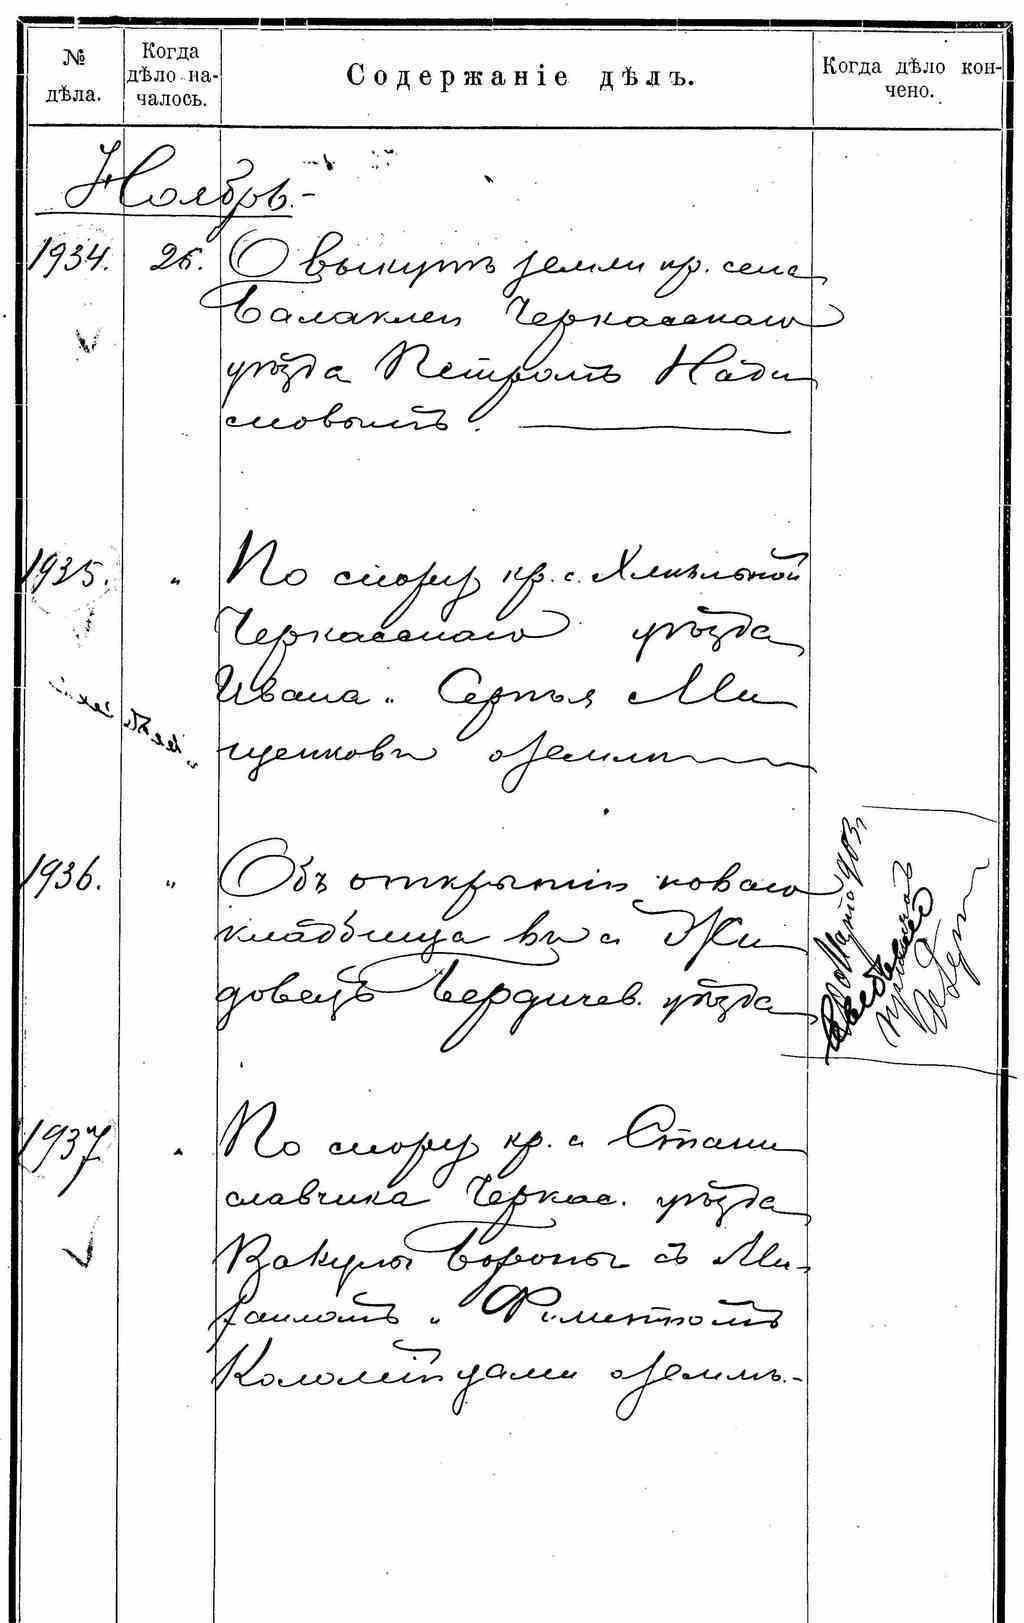 № дѣла.
Когда дѣло на-
чалось.
Содержаніе дѣлъ.
Когда дѣло кон-
чено.
Ноябрь.-
1934. 26. О выкупѣ земли кр. села
Балаклеи Черкасскаго
уѣзда Петромъ
1935. „ По спору кр. с. Хмѣльной
Черкасскаго уѣзда
Ивана и Сергѣя Ми
щенковъ о землѣ
1936. „ Объ открытіи новаго
кладбища въ с Жи
довецъ Бердичев. уѣзда
1937 „ По спору кр. с Стани
славчика Черкас. уѣзда
Вакулы Вороны съ Ми-
хаиломъ и
Коломійцами о землѣ.-